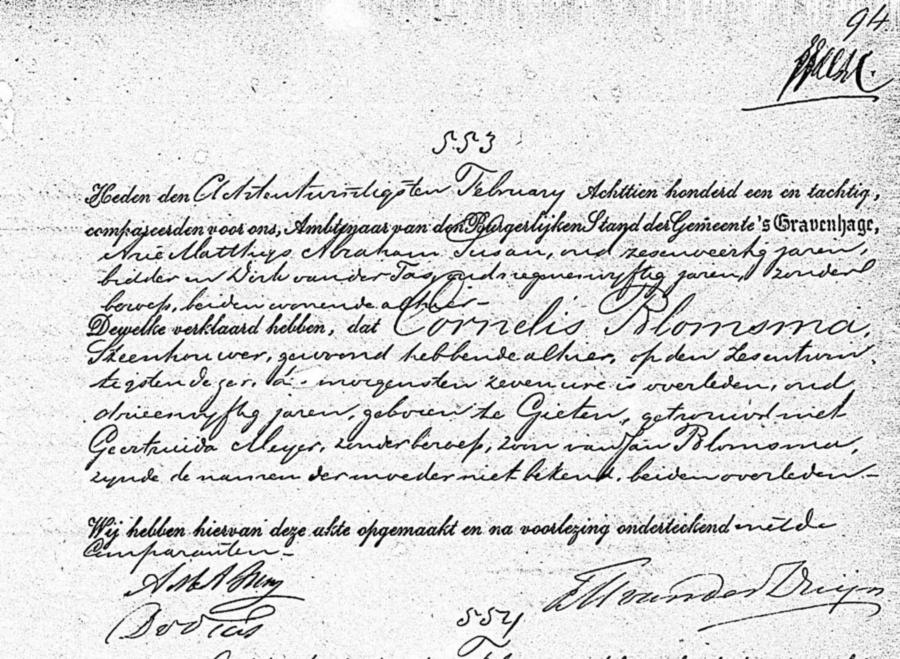 94.
553
Heden den Achtentwintigsten February Achttien honderd een en tachtig,
compareerden voor ons, Ambtenaar van den Burgerlijken Stand der Gemeente 's Gravenhage,
Arie Matthijs Abraham Susan, oud zesenveertig jaren,
bidder en Dirk van der Tas, oud negenenvyftig jaren, zonder
beroep, beiden wonende alhier –
Dewelke verklaard hebben, dat Cornelis Blomsma,
Steenhouwer, gewoond hebbende alhier, op den zesentwin
tigsten dezer, des morgens ten zeven ure is overleden, oud
drieenvyftig jaren, geboren te Gieten, getrouwd met
Geertruida Meyer, zonder beroep, zoon van Jan Blomsma,
zynde de namen der moeder niet bekend, beiden overleden. –
Wij hebben hiervan deze akte opgemaakt en na voorlezing onderteekend met de
Comparanten –
A M A Susan
van der Druyn
D v d Tas
554